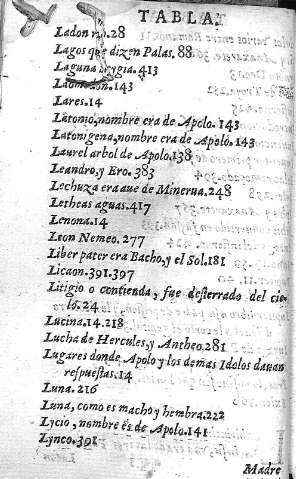 TABLA.
Ladon rio.28
Lagos que dizen Palas. 88
Laguna stigia.413
Laomedon.143
Lares.14
Latonio,nombre era de Apolo. 143
Latonigena,nombre era de Apolo. 143
Laurel arbol de Apolo.138
Leandro, y Ero. 383
Lechuza era aue de Minerua.248
Letheas aguas.417
Lenona.14
Leon Nemeo. 277
Liber pater era Bacho,y el Sol.181
Licaon.391.397
Litigio o contienda, fue desterrado del cie-
lo.24
Lucina.14.218
Lucha de Hercules, y Antheo.281
Lugares donde Apolo y los demas Idolos dauan
respuestas.14
Luna. 216
Luna, como es macho y hembra.222
Lycio, nombre es de Apolo.141
Lynco.391
Madre